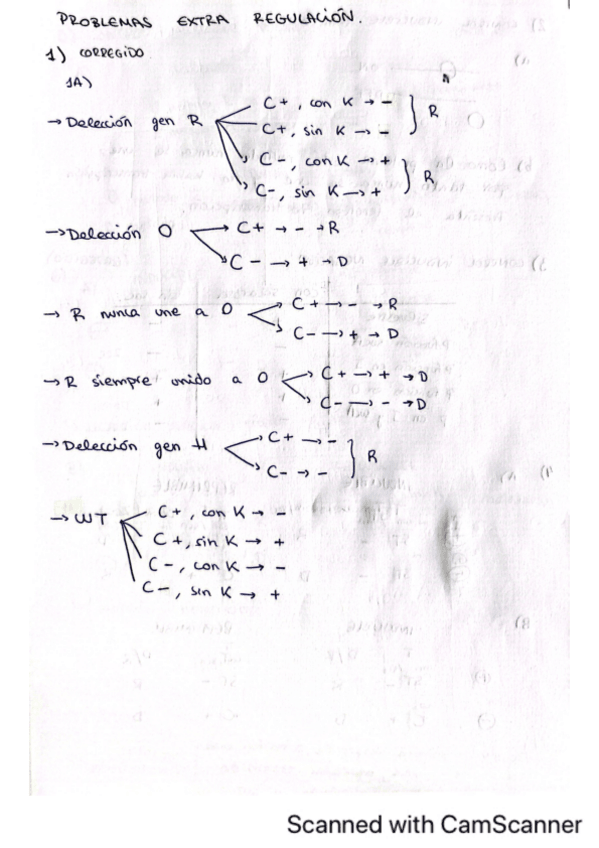 PROBLEMAS EXTRA REGULACIÓN.
1) CORREGIDO.
1A)
→ Deleción gen R
C+, con K → -
C+, sin K → -
} R
C-, con K → +
C-, sin K → +
} R
→ Deleción O
C+ → - → R
C- → + → D
→ R nunca une a O
C+ → - → R
C- → + → D
→ R siempre unido a O
C+ → + → D
C- → - → D
→ Deleción gen H
C+ → -
C- → -
} R
→ WT
C+, con K → -
C+, sin K → +
C-, con K → -
C-, sin K → +
Scanned with CamScanner